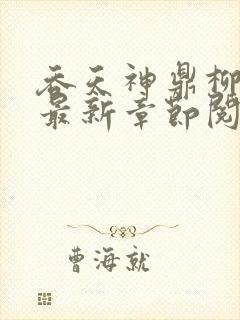 吞天神鼎柳
最新章节阅
曹海就